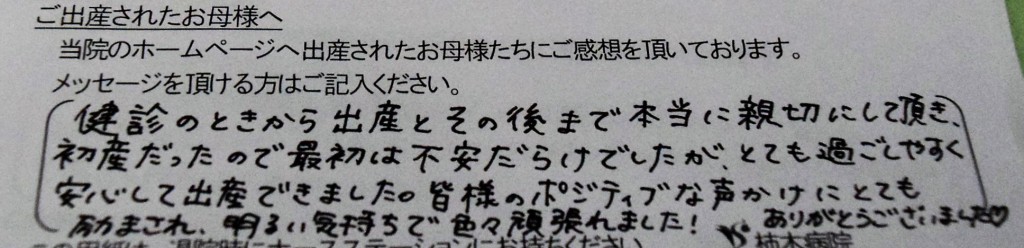 ご出産されたお母様へ
当院のホームページへ出産されたお母様たちにご感想を頂いております。
メッセージを頂ける方はご記入ください。
健診のときから出産とその後まで本当に親切にして頂き、
初産だったので最初は不安だらけでしたが、とても過ごしやすく
安心して出産できました。皆様のポジティブな声かけにとても
励まされ、明るい気持ちで色々頑張れました！ありがとうございました♡
この用紙は、退院時にナースステーションにお持ちください 柿木病院